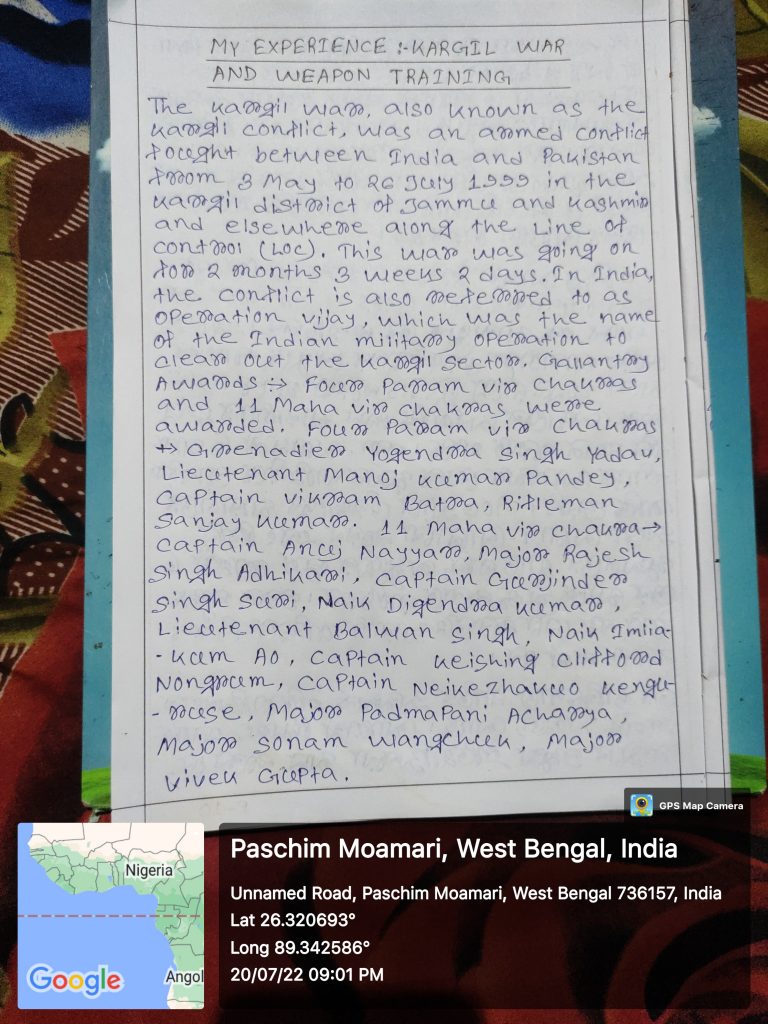 MY EXPERIENCE :- KARGIL WAR
AND WEAPON TRAINING
The Kargil war, also known as the
Kargil conflict, was an armed conflict
fought between India and Pakistan
from 3 May to 26 July 1999 in the
Kargil district of Jammu and Kashmir
and elsewhere along the Line of
control (LOC). This war was going on
for 2 months 3 weeks 2 days. In India,
the conflict is also referred to as
Operation vijay, which was the name
of the Indian military operation to
clear out the Kargil Sector. Gallantry
Awards → Four Param vir chakras
and 11 Maha vir chakras were
awarded. Four Param vir chakras
→ Grenadier Yogendra Singh Yadav,
Lieutenant Manoj Kumar Pandey,
Captain vikram Batra, Rifleman
Sanjay Kumar. 11 Maha vir chakra →
Captain Anuj Nayyar, Major Rajesh
Singh Adhikari, Captain Gurjinder
Singh Suri, Naik Digendra Kumar,
Lieutenant Balwan Singh, Naik Imlia-
-kum Ao, Captain Keishing Clifford
Nongrum, Captain Neikezhakuo Kengu-
-ruse, Major Padmapani Acharya,
Major Sonam Wangchuk, Major
Vivek Gupta.
GPS Map Camera
Nigeria
Angol
Google
Paschim Moamari, West Bengal, India
Unnamed Road, Paschim Moamari, West Bengal 736157, India
Lat 26.320693°
Long 89.342586°
20/07/22 09:01 PM